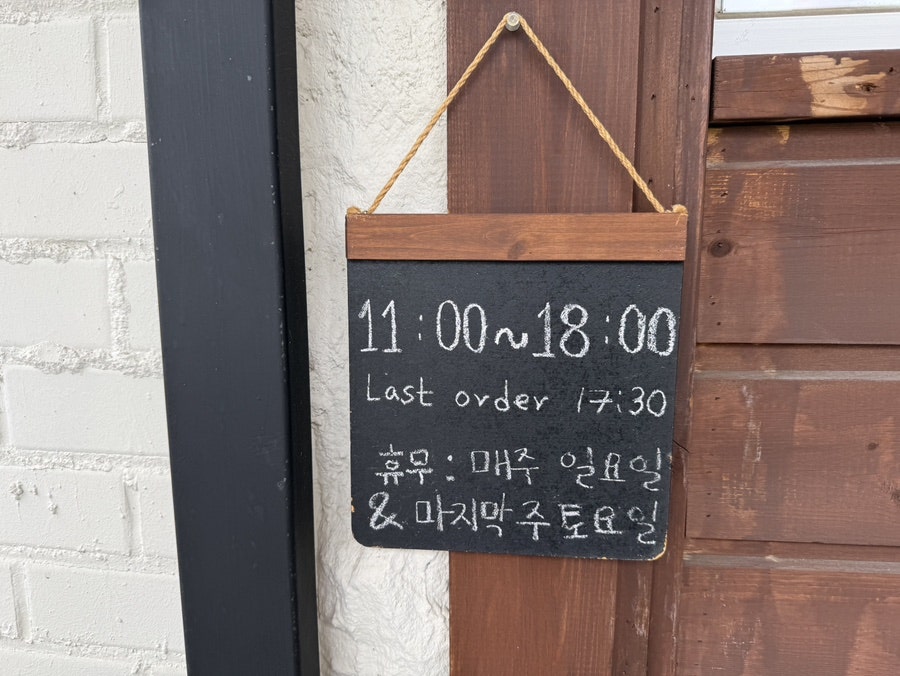 11:00~18:00
Last order 17:30
휴무: 매주 일요일
& 마지막주 토요일